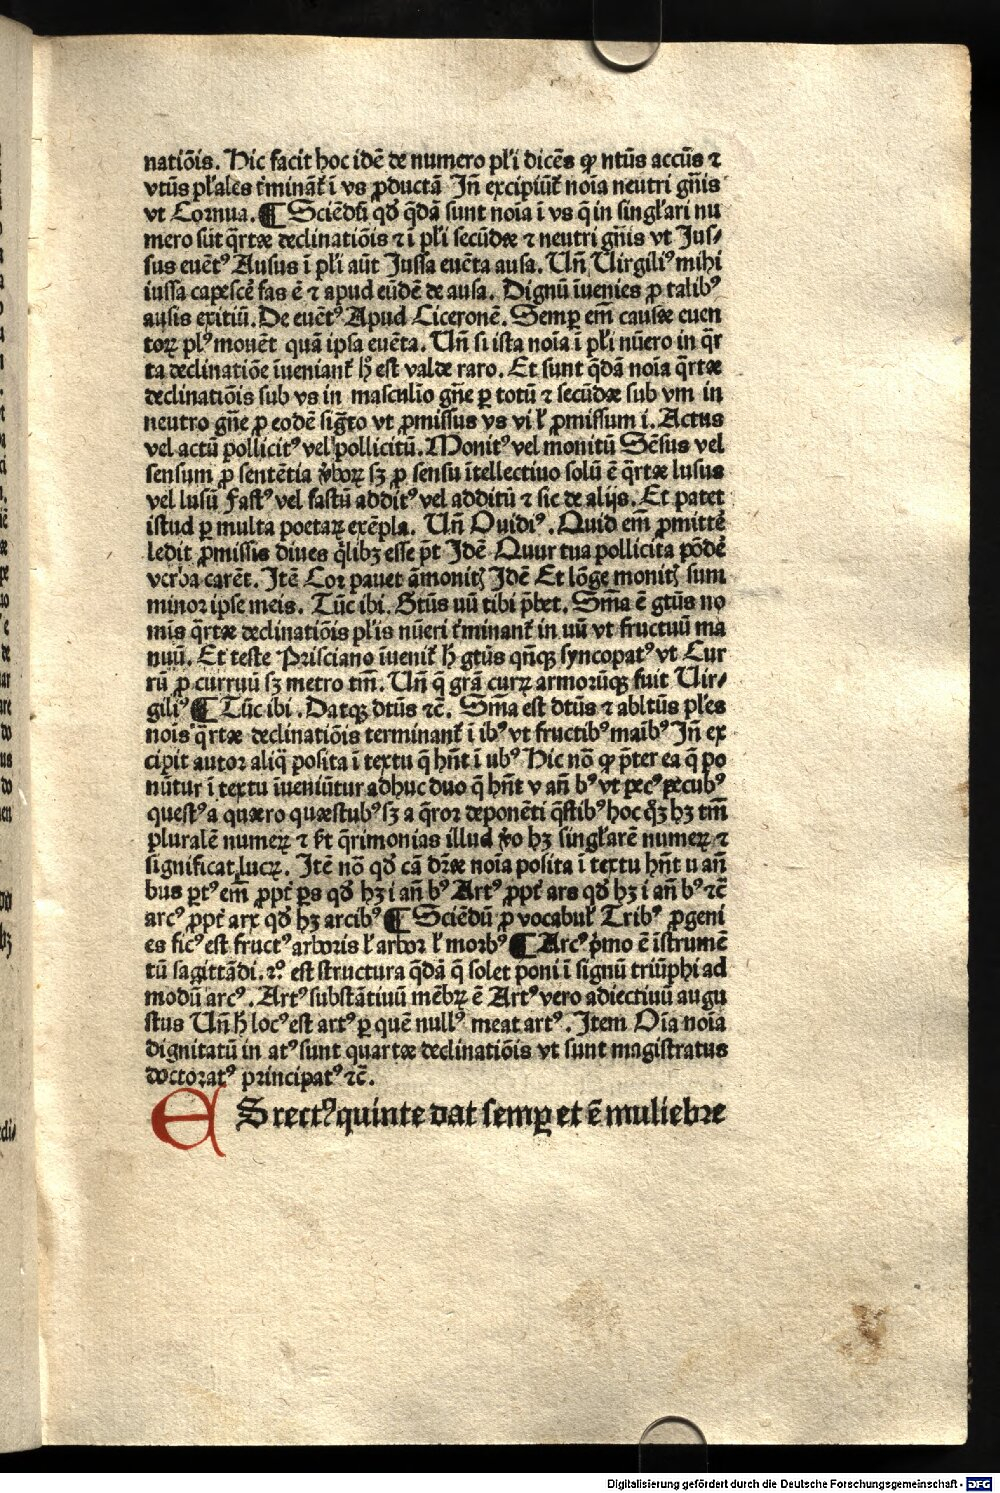 natiōis. Hic facit hoc idē de numero pľi dicēs ꝙ ntūs accūs ⁊
vtūs pľales ť minanť ī vs ꝓductā Jn̄ excipiūť noīa neutri gn̄is
vt Cornua. ¶ Sciēdū qđ q̄dā sunt noīa ī vs q̄ in singľari nu
mero sūt q̄rtæ declinatiōis ⁊ ī pľi secūdæ ⁊ neutri gn̄is vt Jus⸗
sus euētꝰ Ausus ī pľi aūt Jussa euēta ausa. Un̄ Uirgiliꝰ mihi
iussa capescē fas ē ⁊ apud eūdē de ausa. Dignū īuenies ꝓ talibꝰ
ausis exitiū. De euētꝰ Apud Ciceronē. Semꝑ em̄ causæ euen
toꝝ plꝰ mouēt quā ipsa euēta. Un̄ si ista noīa ī pľi nūero in q̄r
ta declinatiōe īueniant̉ hꝫ est valde raro. Et sunt q̄dā noīa q̄rtæ
declinatiōis sub vs in masculīo gn̄e ꝑ totū ⁊ secūdæ sub vm in
neutro gn̄e ꝓ eodē sigt̄o vt ꝓmissus vs vi ľ ꝓmissum i. Actus
vel actū pollicitꝰ vel pollicitū. Monitꝰ vel monitū Sēsus vel
sensum ꝓ sentētia v̉boꝝ sꝫ ꝓ sensu ītellectiuo solū ē q̄rtæ lusus
vel lusū Fastꝰ vel fastū additꝰ vel additū ⁊ sic de alijs. Et patet
istud ꝑ multa poetaꝝ exēpla. Un̄ Ouidiꝰ. Quid em̄ ꝓmittē
ledit ꝓmissis diues q̄libꝫ esse pt̄ Jdē Quur tua pollicita pōdē
verba carēt. Jtē Cor pauet āmonitꝫ Jdē Et lōge monitꝫ sum
minor ipse meis. Tūc ibi. Gtūs uū tibi p̄bet. Sm̄a ē gtūs no
mīs q̄rtæ declinatiōis pľis nūeri ť minant̉ in uū vt fructuū ma
nuū. Et teste Prisciano īuenit̉ h̄ gtūs qn̄qꝫ syncopatꝰ vt Cur
rū ꝓ curruū sꝫ metro tm̄. Un̄ q̄ grā curꝝ armorūqꝫ fuit Uir⸗
giliꝰ ¶ Tūc ibi. Datqꝫ dtūs ⁊c̄. Sm̄a est dtūs ⁊ abltūs pľes
nois q̄rtæ declinatiōis terminant̉ ī ibꝰ vt fructibꝰ maībꝰ Jn̄ ex
cipit autor aliq̄ posita ī textu q̄ hn̄t ī ubꝰ Hic nō ꝙ p̄ter ea q̄ po
nūtur ī textu īueniūtur adhuc duo q̄ hn̄t v an̄ bꝰ vt pecꝰ pecubꝰ
questꝰ a quæro quæstubꝰ sꝫ a q̄ror deponēti q̄stibꝰ hoc q̄ꝫ hꝫ tm̄
pluralē numeꝝ ⁊ fit̉ q̄rimonias illud v̉o hꝫ singľarē numeꝝ ⁊
significat lucꝝ. Jtē nō qđ cā dr̄æ noīa posita ī textu hn̄t u an̄
bus ꝑtꝰ em̄ ꝓpt̉ ꝑs qđ hꝫ i an̄ bꝰ Artꝰ ꝓpt̉ ars qđ hꝫ i an̄ bꝰ ⁊c̄
arcꝰ ꝓpt̉ arx qđ hꝫ arcibꝰ ¶ Sciēdū ꝓ vocabuľ Tribꝰ ꝓgeni
es ficꝰ est fructꝰ arboris ľ arbor ľ morbꝰ ¶ Arcꝰ p̄mo ē īstrumē
tū sagittādi. ⁊ͦ est structura q̄dā q̄ solet poni ī signū triūphi ad
modū arcꝰ. Artꝰ substātiuū mēbꝝ ē Artꝰ vero adiectiuū augu
stus Un̄ h̄ locꝰ est artꝰ ꝑ quē nullꝰ meat artꝰ. Jtem Oīa noīa
dignitatū in atꝰ sunt quartæ declinatiōis vt sunt magistratus
doctoratꝰ principatꝰ ⁊c̄.
ES rectꝰ quinte dat semꝑ et ē muliebre
Digitalisierung gefördert durch die Deutsche Forschungsgemeinschaft - DFG